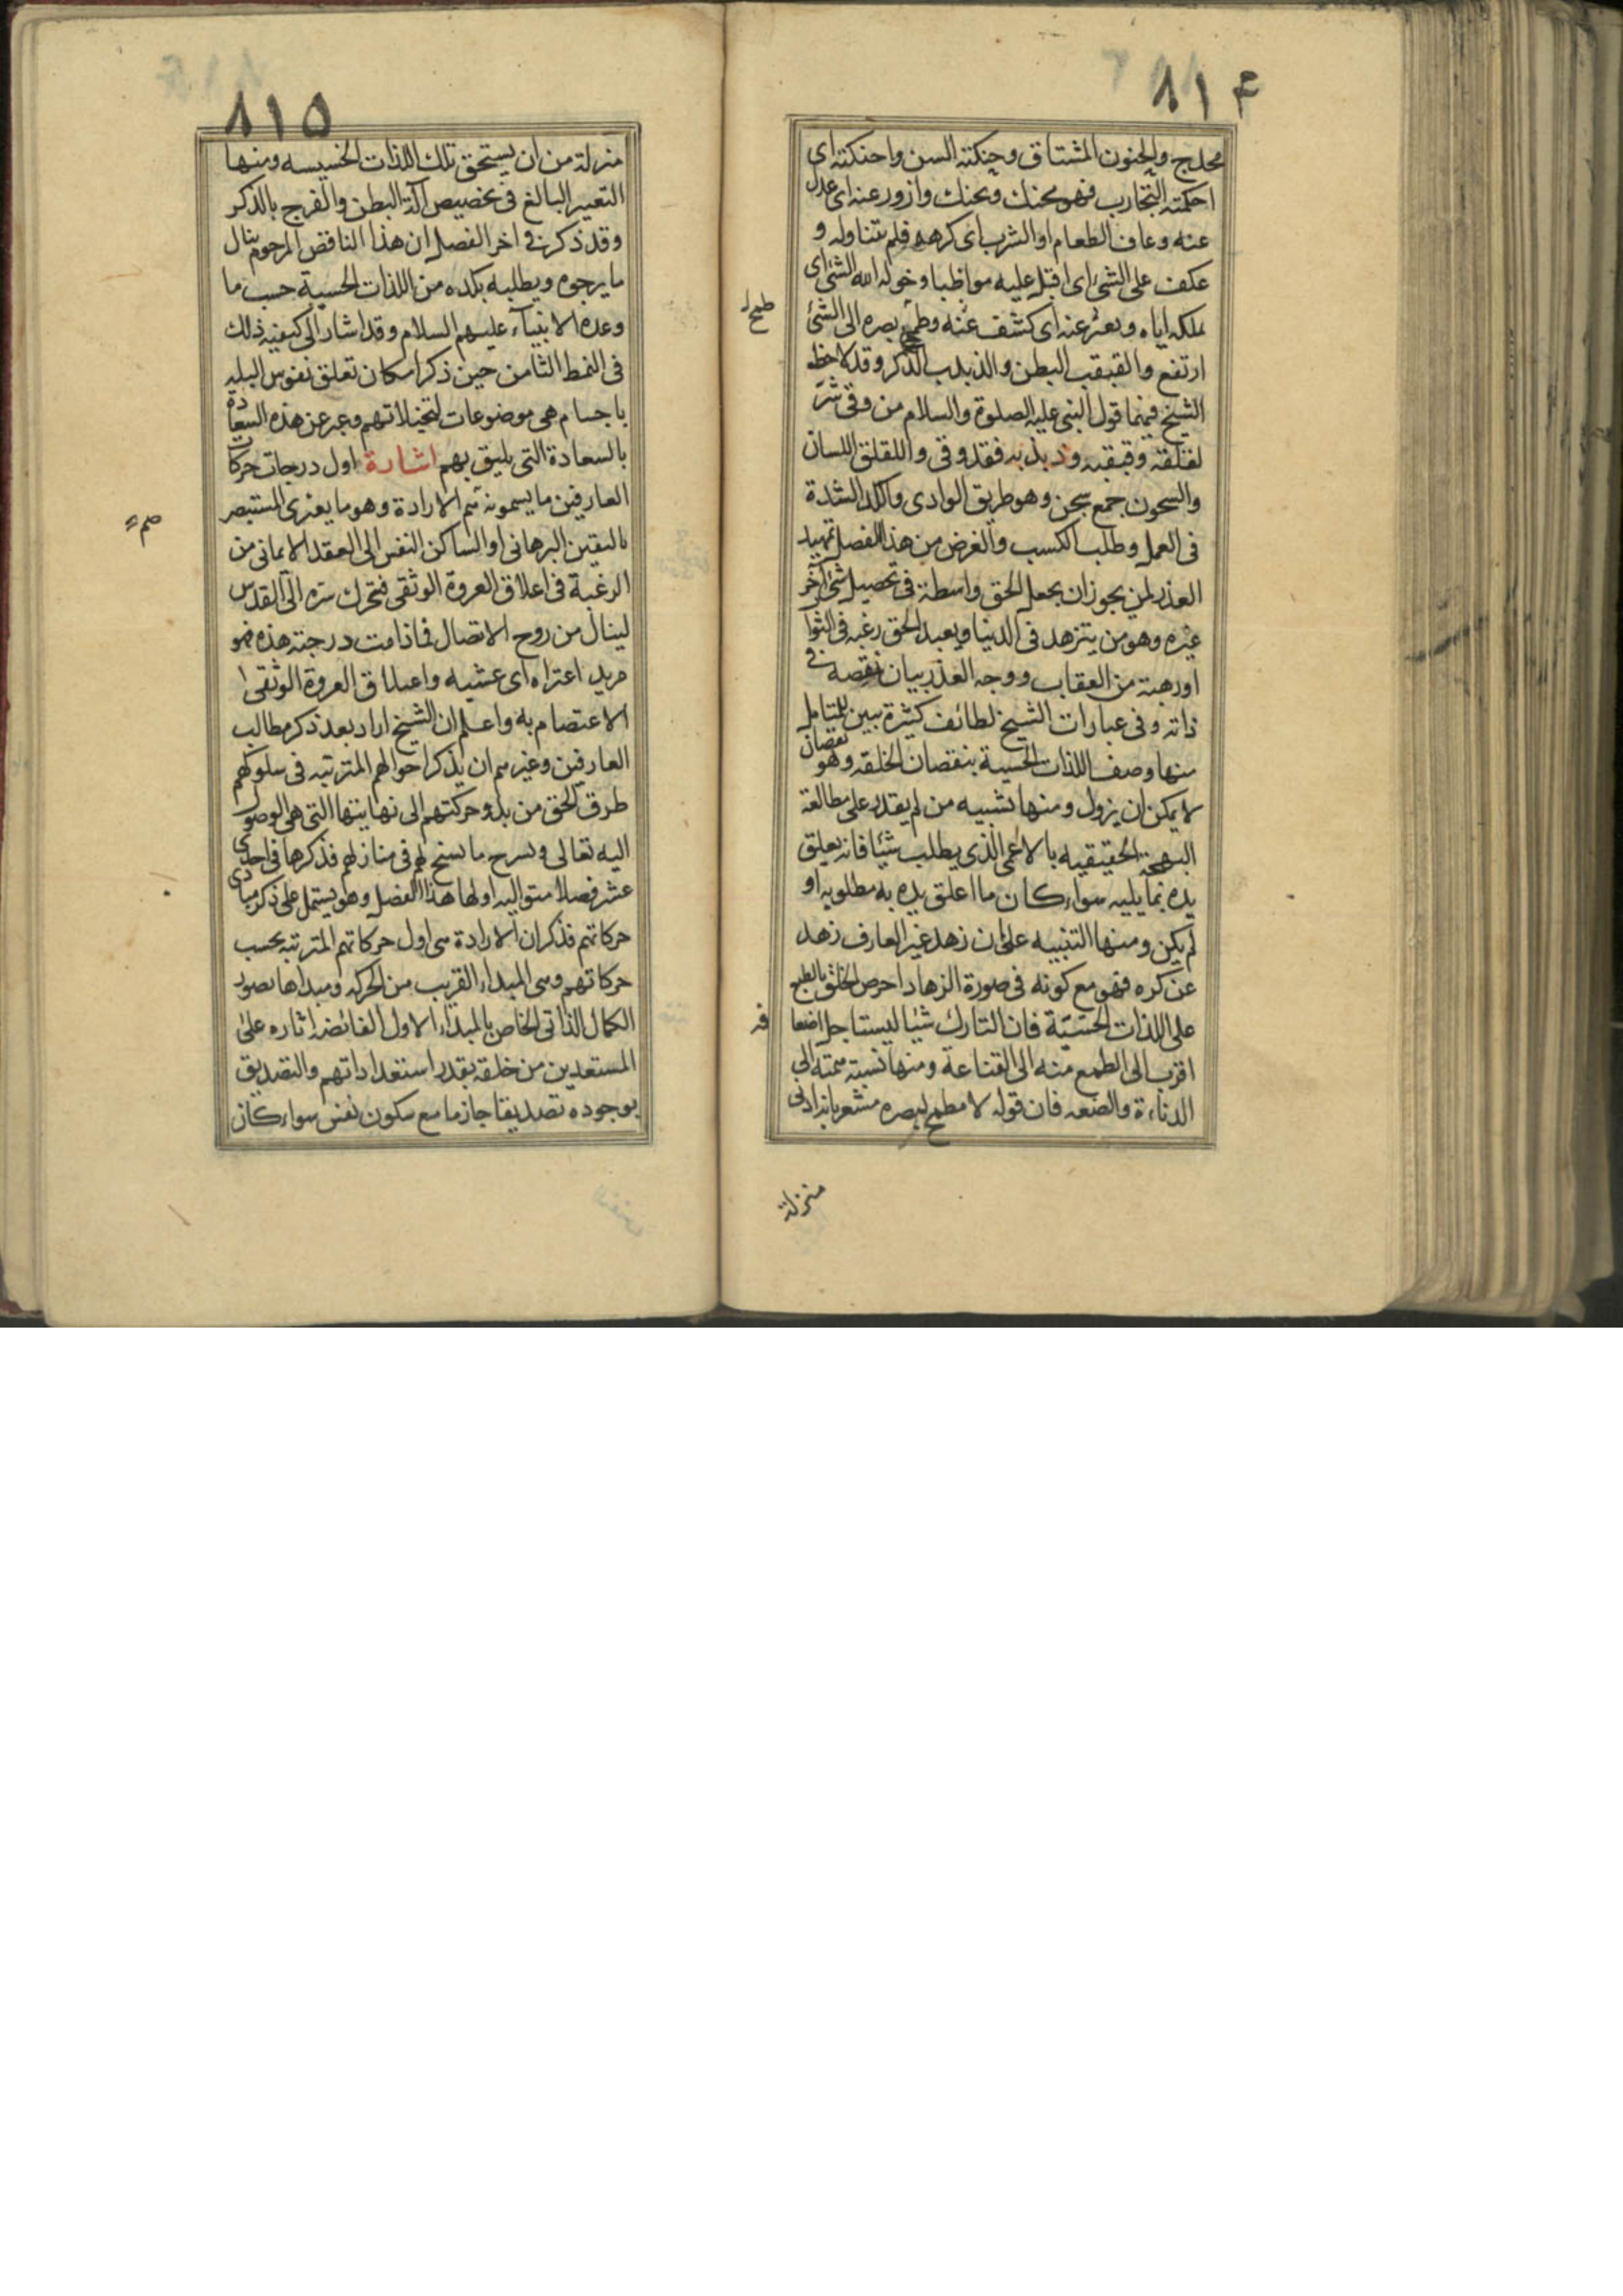 ٨١٤
مخدج والحنون المشتاق وحنكته السن واحنكته اى
احكمته التجارب فهو محنك ومحنك وازور عنه اى عدل
عنه وعاف الطعام او الشرب اى كرهه فلم يتناوله و
عكف على الشئ اى اقبل عليه مواظبا وخوله الله الشئ اى
ملكه اياه وبعثر عنه اى كشف عنه وطمح بصره الى الشئ
طمح
ارتفع والقبقب البطن والذبذب الذكر وقد لاحظ
الشيخ فيهما قول النبى عليه الصلوة والسلام من وقى شر
لقلقه وقبقبه وذبذبه فقد وقى واللقلق اللسان
والسجون جمع سجن وهو طريق الوادى والكد الشدة
فى العمل وطلب الكسب والغرض من هذا الفصل تمهيد
العذر لمن يجوز ان يجعل الحق واسطة فى تحصيل شئ آخر
غيره وهو من يتزهد فى الدنيا ويعبد الحق رغبه فى الثوا
اورهبة من العقاب ووجه العذر بيان نقصه فى
ذاته وفى عبارات الشيخ لطائف كثيرة تبين للمتامل
منها وصف اللذات الحسية بنقصان الخلقه وهو نقصان
لا يمكن ان يزول ومنها تشبيه من لم يقدر على مطالعة
البهجة الحقيقيه بالاعمى الذى يطلب شيئا فانه يعلق
يده بما يليه سواء كان ما اعلق يده به مطلوبه او
لم يكن ومنها التنبيه على ان زهد غير العارف زهد
عن كره فهو مع كونه فى صورة الزهاد احرص الخلق بالطبع
على اللذات الحسية فان التارك شيئا ليستاجل اضعا
فه
اقرب الى الطمع منه الى القناعة ومنها نسبته همته الى
الدناءة والضعه فان قوله لا مطمح لبصره مشعر بانه ادنى
منزلة
٨١٥
منزلة من ان يستحق تلك اللذات الخسيسه ومنها
التعيير البالغ فى تخصيص آلة البطن والفرج بالذكر
وقد ذكر فى اخر الفصل ان هذا الناقص المرحوم ينال
ما يرجوه ويطلبه بكده من اللذات الحسية حسب ما
وعده الانبياء عليهم السلام وقد اشار الى كيفيه ذلك
فى النمط الثامن حين ذكر امكان تعلق نفوس البله
باجسام هى موضوعات لتخيلاتهم وعبر عن هذه السعادة
بالسعادة التى يليق بهم اشارة اول درجات حركات
العارفين ما يسمونه هم الارادة وهو ما يعترى المستبصر
هم
باليقين البرهانى او الساكن النفس الى العقد الايمانى من
الرغبة فى اعلاق العروة الوثقى فتحرك سره الى القدس
لينال من روح الاتصال فما دامت درجته هذه فهو
مريد اعتراه اى غشيه واعلاق العروة الوثقى
الاعتصام به واعلم ان الشيخ اراد بعد ذكر مطالب
العارفين وغيرهم ان يذكر احوالهم المترتبه فى سلوكهم
طرق الحق من بدو حركتهم الى نهايتها التى هى الوصول
اليه تعالى ويسرح ما يسنح لهم فى منازلهم فذكرها فى احدى
عشر فصلا متواليه اولها هذا الفصل وهو يشتمل على ذكر مبادى
حركاتهم فذكر ان الارادة هى اول حركاتهم المترتبه بحسب
حركاتهم وهى المبداء القريب من الحركه ومبداها تصور
الكمال الذاتى الخاص بالمبداء الاول الفائضه اثاره على
المستعدين من خلقه بقدر استعداداتهم والتصديق
بوجوده تصديقا جازما مع سكون نفس سواء كان